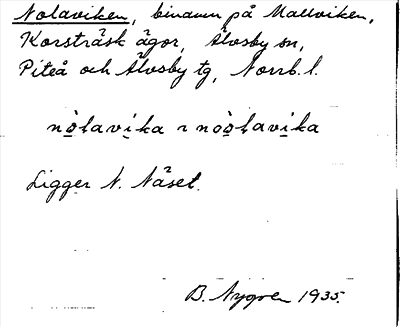 Nolaviken, binamn på Mallviken,
Korsträsk ägor, Älvsby sn,
Piteå och Älvsby tg, Norrb. l.
nòlavika ɿ noòlavika
Ligger N. Näset.
B. Nygren 1935.